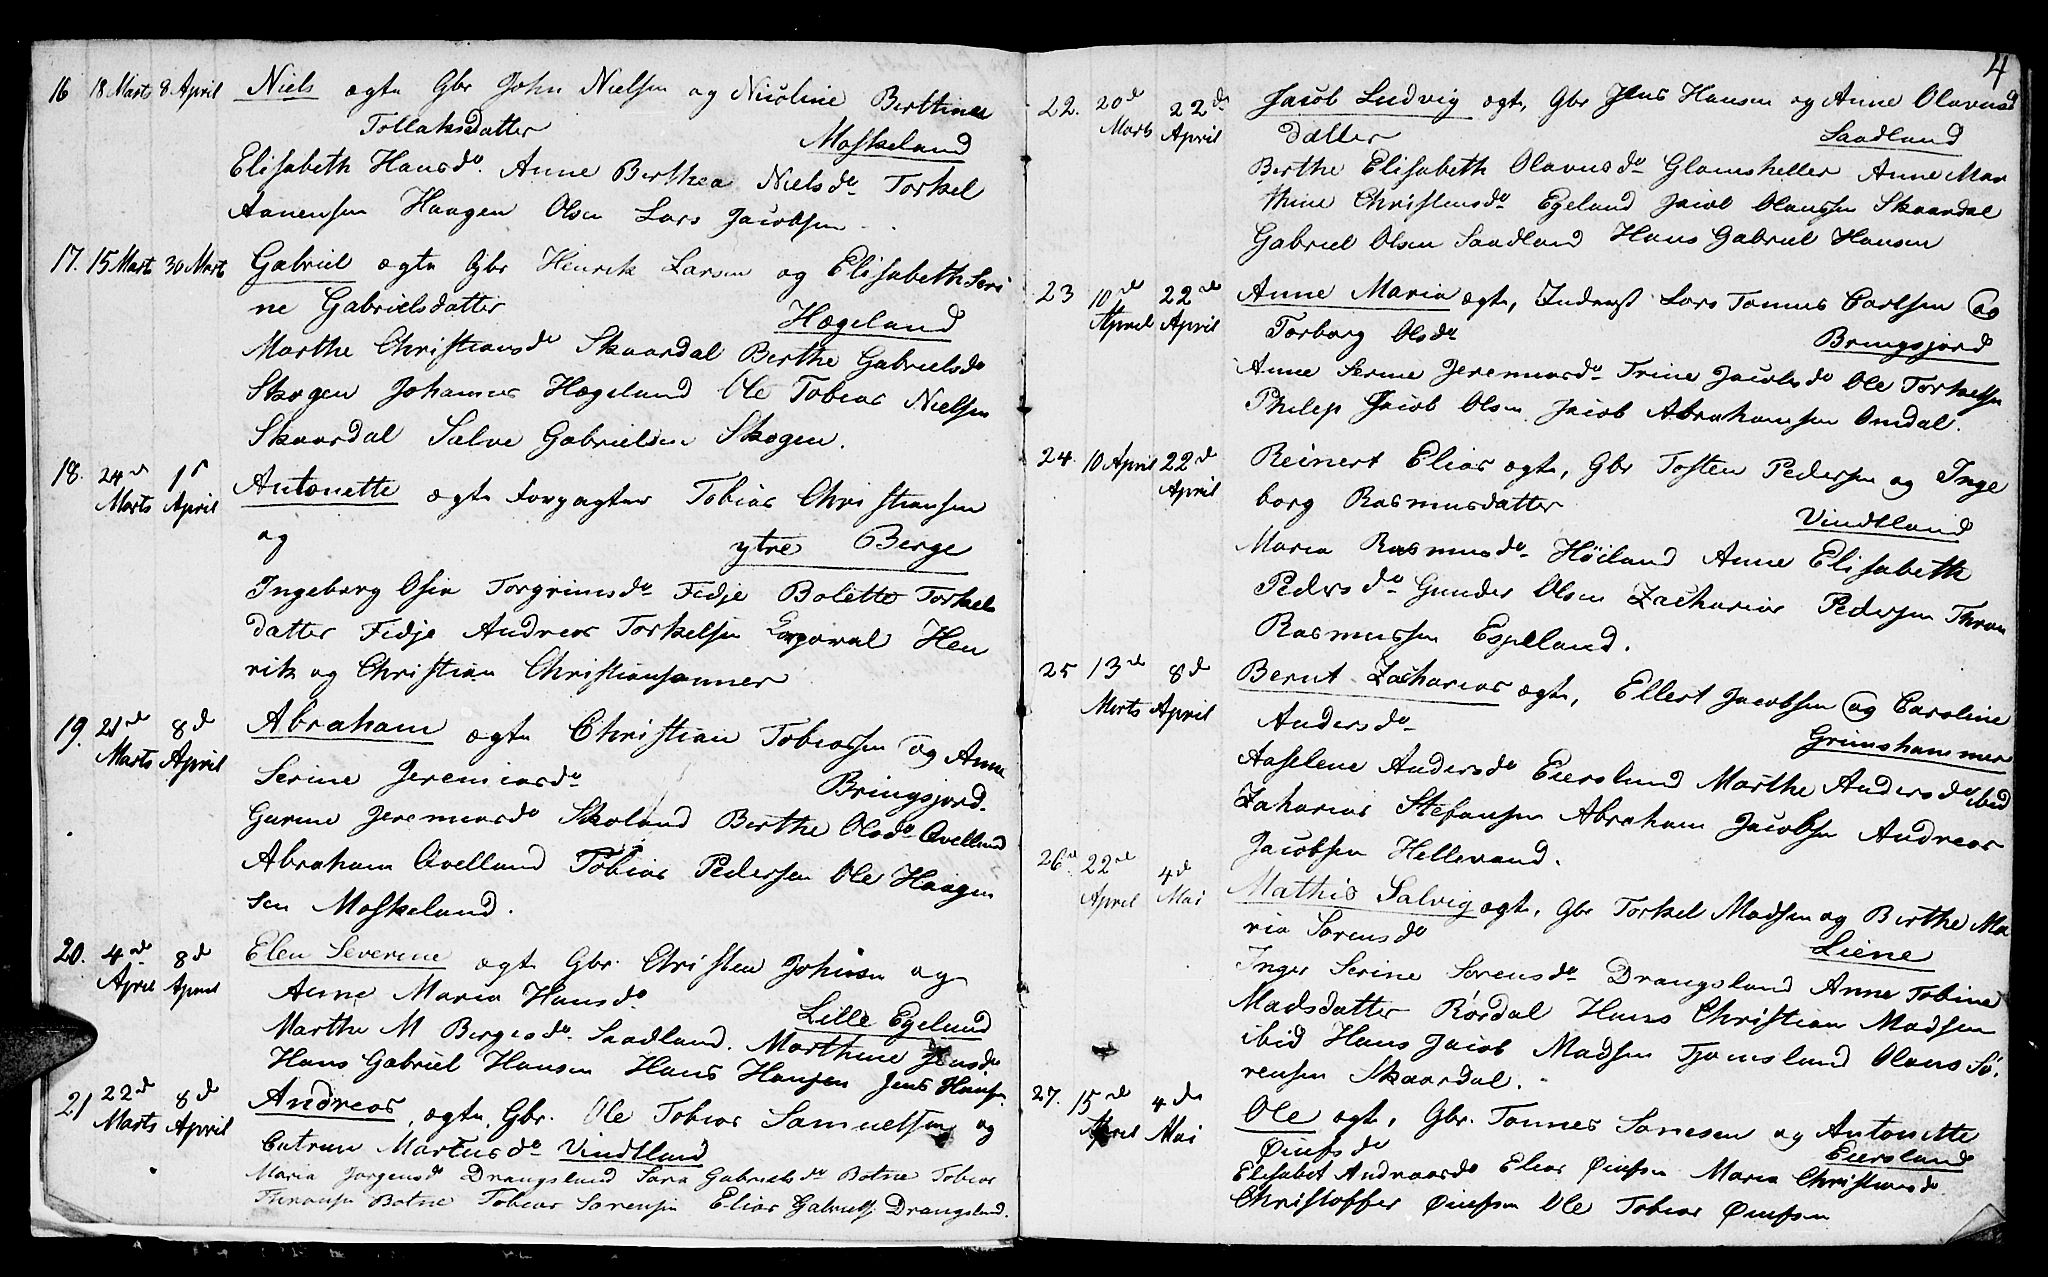 16 18 Marts 8 April Niels ægte Gbr John Nielsen og Nicoline Berttine
Tollaksdatter Moskeland
Elisabeth Hansd. Anne Berthea Nielsd. Torkel
Aanensen Haagen Olsen Lars Jacobsen
17. 15 Mart 30 Mart Gabriel ægte Gbr Henrik Larsen og Elisabeth Seri
ne Gabrielsdatter Hægeland
Marthe Christiansd. Skaardal Berthe Gabrielsd.
Skogen Johannes Hægeland Ole Tobias Nielsen
Skaardal Salve Gabrielsen Skogen.
18. 24d 1s Antonette ægte forpagter Tobias Christiansen
Marts April
og ytre Berge
Ingeborg Osia Torgrimsd. Fidje Bolette Torkels
datter Fidje Andreas Torkelsen Corporal Hen
rik og Christian Christiansønner
19. 21d 8d Abraham ægte Christian Tobiassen og Anne
Marts April
Serine Jeremiasd. Bringsjord.
Gurine Jeremiasd. Skoland Berthe Olsd. Qvelland
Abraham Qvelland Tobias Pedersen Ole Haagen
sen Moskeland.
20. 4de 8d Elen Severine ægte Gbr. Christen Johnsen og
April April
Anne Maria Hansd. Lille Egeland
Marthe M Bergesd. Saadland. Marthine Jensd.
Hans Gabriel Hansen Hans Hansen Jens Hans.
21 22d 8d Andreas ægte Gbr. Ole Tobias Samuelsen og
Marts April
Catrine Martusd. Vindtland
Maria Jørgensd. Drangsland Sara Gabrielsd. Botne Tobias
Thronsen Botne Tobias Sørensen Elias Gabriels. Drangsland.
4
22. 20d 22d Jacob Ludvig ægte, Gbr Jens Hansen og Anne Olavusd
Marts April
datter Saadland
Berthe Elisabeth Olavusd. Glamsheller Anne Mar
thine Christensd. Egeland Jacob Olaussen Skaardal
Gabriel Olsen Saadland Hans Gabriel Hansen
23 10d 22d Anne Maria ægte, Inderst Lars Tønnes Carlsen og
April April
Torborg Olsd. Bringsjord
Anne Serine Jeremiasd. Trine Jacobsd. Ole Torkelsen
Philip Jacob Olsen Jacob Abrahamsen Omdal.
24. 10 April 22d Reinert Elias ægte, Gbr Tosten Pedersen og Inge
April
borg Rasmusdatter Vindtland
Maria Rasmusd. Höiland Anne Elisabeth
Pedersd. Gunder Olsen Zacharias Pedersen Thron
Rasmussen Espeland.
25 13d 8d Bernt Zacharias ægte, Ellert Jacobsen og Caroline
Marts April
Andersd. Grimshammer
Aaselene Andersd. Eiersland Marthe Andersd. ibid
Zakarias Stefansen Abraham Jacobsen Andreas
Jacobsen Hellevand.
26. 22d 4d Mathis Salvig ægte, Gbr Torkel Madsen og Berthe Ma
April Mai
ria Sørensd. Liene
Inger Serine Sørensd. Drangsland Anne Tobine
Madsdatter Rördal Hans Christian Madsen
ibid Hans Jacob Madsen Tjomsland Olaus Sö,
rensen Skaardal.
27. 15d 4de Ole ægte, Gbr. Tønnes Sørensen og Antonette
April Mai
Øiufsd. Eiersland
Elisabet Andreasd. Elias Øiufsen Maria Christiansd.
Christoffer Øiufsen Ole Tobias Øiufsen